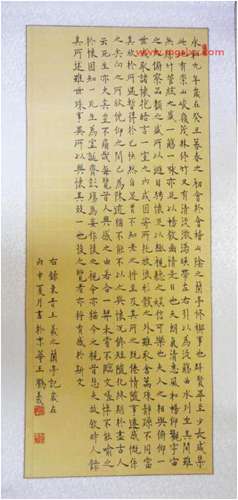 永和九年歲在癸丑暮春之初會於會稽山陰之蘭亭修禊事也群賢畢至少長咸集
此地有崇山峻嶺茂林修竹又有清流激湍映帶左右引以為流觴曲水列坐其次雖
無絲竹管弦之盛一觴一詠亦足以暢敘幽情是日也天朗氣清惠風和暢仰觀宇宙
之大俯察品類之盛所以遊目騁懷足以極視聽之娛信可樂也夫人之相與俯仰一
世或取諸懷抱晤言一室之內或因寄所託放浪形骸之外雖取舍萬殊靜躁不同當
其欣於所遇暫得於己快然自足不知老之將至及其所之既倦情隨事遷感慨係
之矣向之所欣俯仰之間已為陳迹猶不能不以之興懷況修短隨化終期於盡古人
云死生亦大矣豈不痛哉每覽昔人興感之由若合一契未嘗不臨文嗟悼不能喻之
於懷固知一死生為虛誕齊彭殤為妄作後之視今亦猶今之視昔悲夫故列敘時人錄
其所述雖世殊事異所以興懷其致一也後之覽者亦將有感於斯文
右錄東晉王羲之蘭亭記歲在
丙申夏月書於京華王鶴義